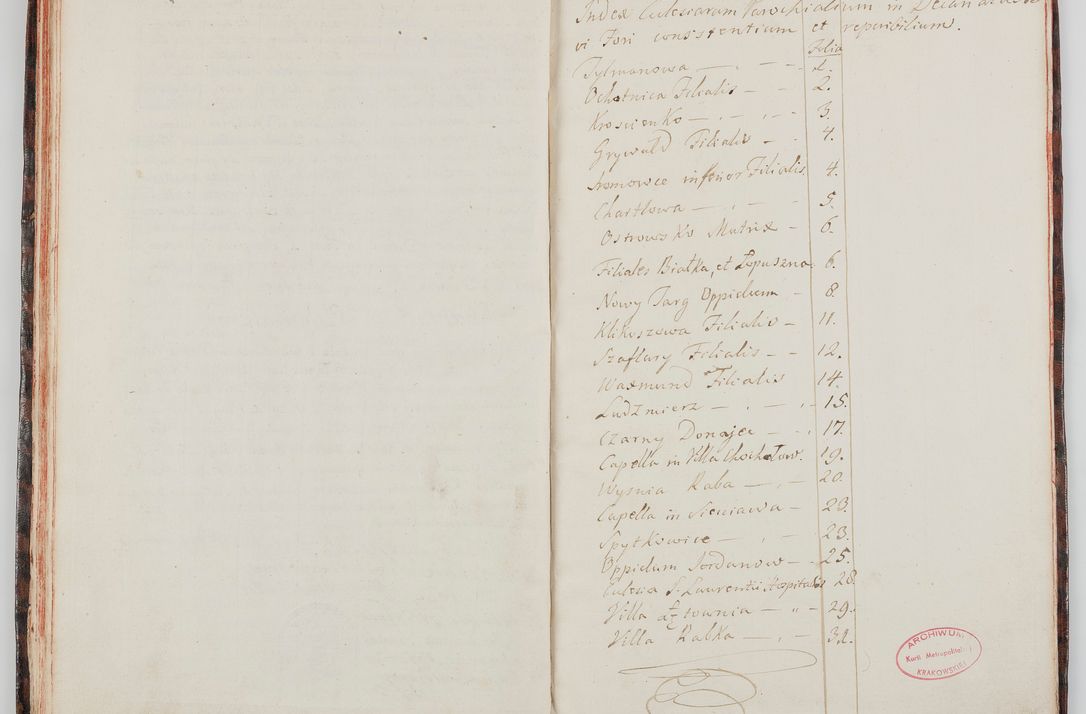 Index Eclesiarum Parochialium in Decanatu No
vi Fori consistentium et reperibilium.
Folia
Tylmanowa — . — — . 1.
Ochotnica Filialis — — 2.
Krościenko — . — . — 3.
Grywałd Filialis — . 4.
Sromowce inferior Filialis. 4.
Chartłowa — . — 5.
Ostrowsko Matrix — 6.
Filiales Białka, et Łopuszna. 6.
Nowy Targ Oppidum — 8.
Klikuszowa Filialis — 11.
Szaflary Filialis — — 12.
Waxmund Filialis 14.
Ludzmierz — . — . — 15.
Czarny Donajec — — . 17.
Capella in Villa Chochołow. 19.
Wysnia Raba — . — 20.
Capella in Sieniawa — 23.
Spytkowice — . — 23.
Oppidum Jordanow — . 25.
Eclesia S. Laurentii Hospitalis 28
Villa Łętownia — " — 29.
Villa Rabka — . — 32.
ARCHIWUM
Kurii Metropolitalnej
KRAKOWSKIEJ